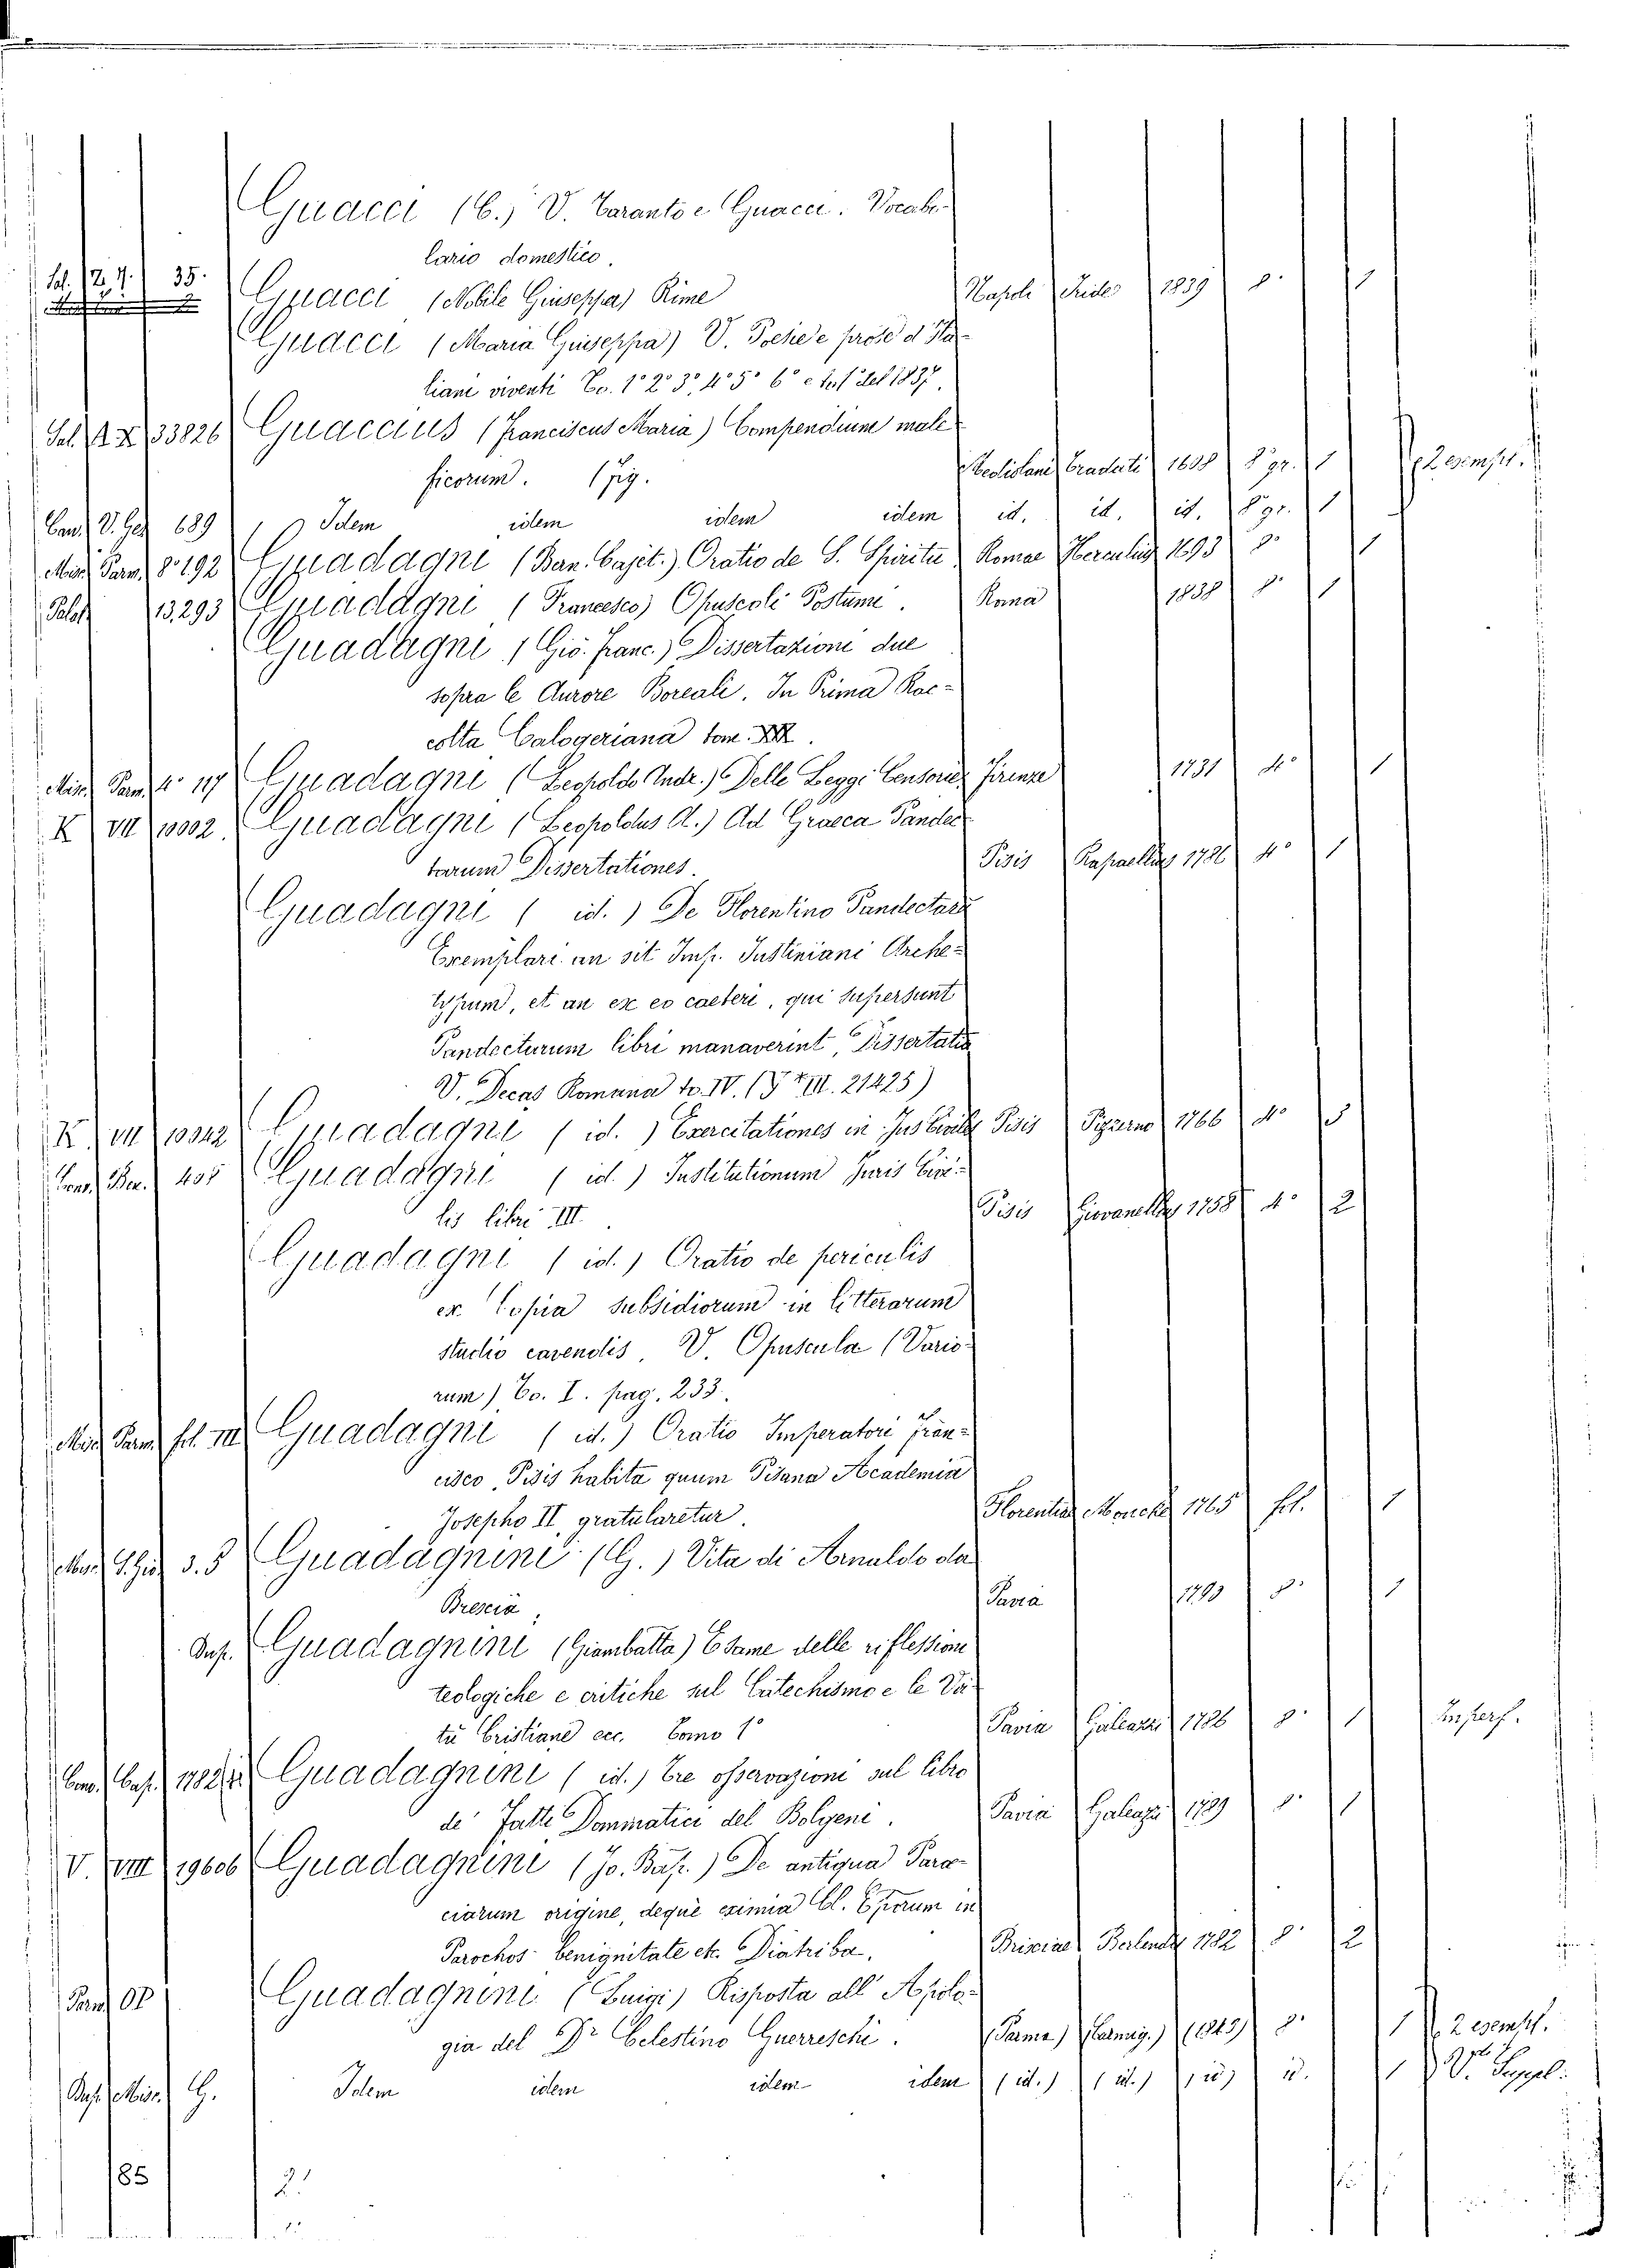 Guacci (C.) V. Taranto e Guacci. Vocabo-
lario domestico.
Sal. Z. 4. 35. Guacci (Nobile Giuseppa) Rime Napoli 1839 8° 1
Guacci (Maria Giuseppa) V. Poesie e prose d'Ita-
liani viventi To. 1° 2° 3° 4° 5° 6° e del 1837.
Sal. A X 33826 Guaccius (Franciscus Maria) Compendium male
ficorum. (fig. Mediolani 1608 8° gr. 1 2 esempl.
Canc. V. Ges. 689 Idem idem idem idem id. id. id. 8° gr. 1
Misc. Parm. 8° 192 Guadagni (Ban. Cajet.) Oratio de S. Spiritu Romae Herculis 1693 8° 1
Palat. 13,293 Guadagni (Francesco) Opuscoli Postumi. Roma 1838 8° 1
Guadagni (Gio. Franc.) Dissertazioni due
sopra le Aurore Boreali. In Prima Rac-
colta Calogeriana tom.
Misc. Parm. 4° 117 Guadagni (Leopoldo Andr.) Delle Leggi Censorie Firenze 1731 4° 1
K VII 10002 Guadagni (Leopoldus A.) Ad Graeca Pandec
tarum Dissertationes. Pisis Rapaellius 1786 4° 1
Guadagni (id.) De Florentino Pandectaru
Exemplari an sit Imp. Justiniani Arche-
typum, et an ex eo caeteri, qui supersunt
Pandecturum libri manaverint, Dissertatio
V. Decas Romana to. IV. 21425)
K. VII 10342 Guadagni (id.) Exercitationes in Jus Civile Pisis Pizzorno 1766 4° 3
405 Guadagni (id.) Institutionum Juris Civi-
lis libri III. Pisis Giovanellus 1758 4° 2
Guadagni (id.) Oratio de periculis
ex Copia subsidiorum in litterarum
studio cavendis. V. Opuscula (Vario-
rum) To. I. pag. 233.
Misc. Parm. fol. III Guadagni (id.) Oratio Imperatori Fran-
cisco, Pisis habita quum Pisana Academia
Josepho II, gratularetur. Florentiae Moucke 1765 fol. 1
3.5 Guadagnini (G.) Vita di Arnaldo da
Brescia. Pavia 1790 8° 1
Dup. Guadagnini (Giambatta) Esame delle riflessioni
teologiche e critiche sul Catechismo e le Vir
tù Cristiane ecc. Tomo 1° Pavia Galeazzi 1786 8° 1 Imperf.
Canc. Cas. 1782 Guadagnini (id.) Tre osservazioni sul libro
de' Fatti Dommatici del Bolgeni. Pavia Galeazzi 1789 8° 1
V. VIII 19606 Guadagnini (Jo. Bap.) De antiqua Paro-
ciarum origine, deque eximia Cl. Eporum in
Parochos benignitate etc. Diatriba. Brixiae Berlendis 1782 8° 2
Parm. OP Guadagnini (Luigi) Risposta all' Apolo-
gia del Dr Celestino Guerreschi. (Parma) (Carmig.) (1843) 8° 1 2 esempl.
Dup. Misc. G. Idem idem idem idem (id.) (id.) (id.) id. 1 V. Suppl.
185 2.